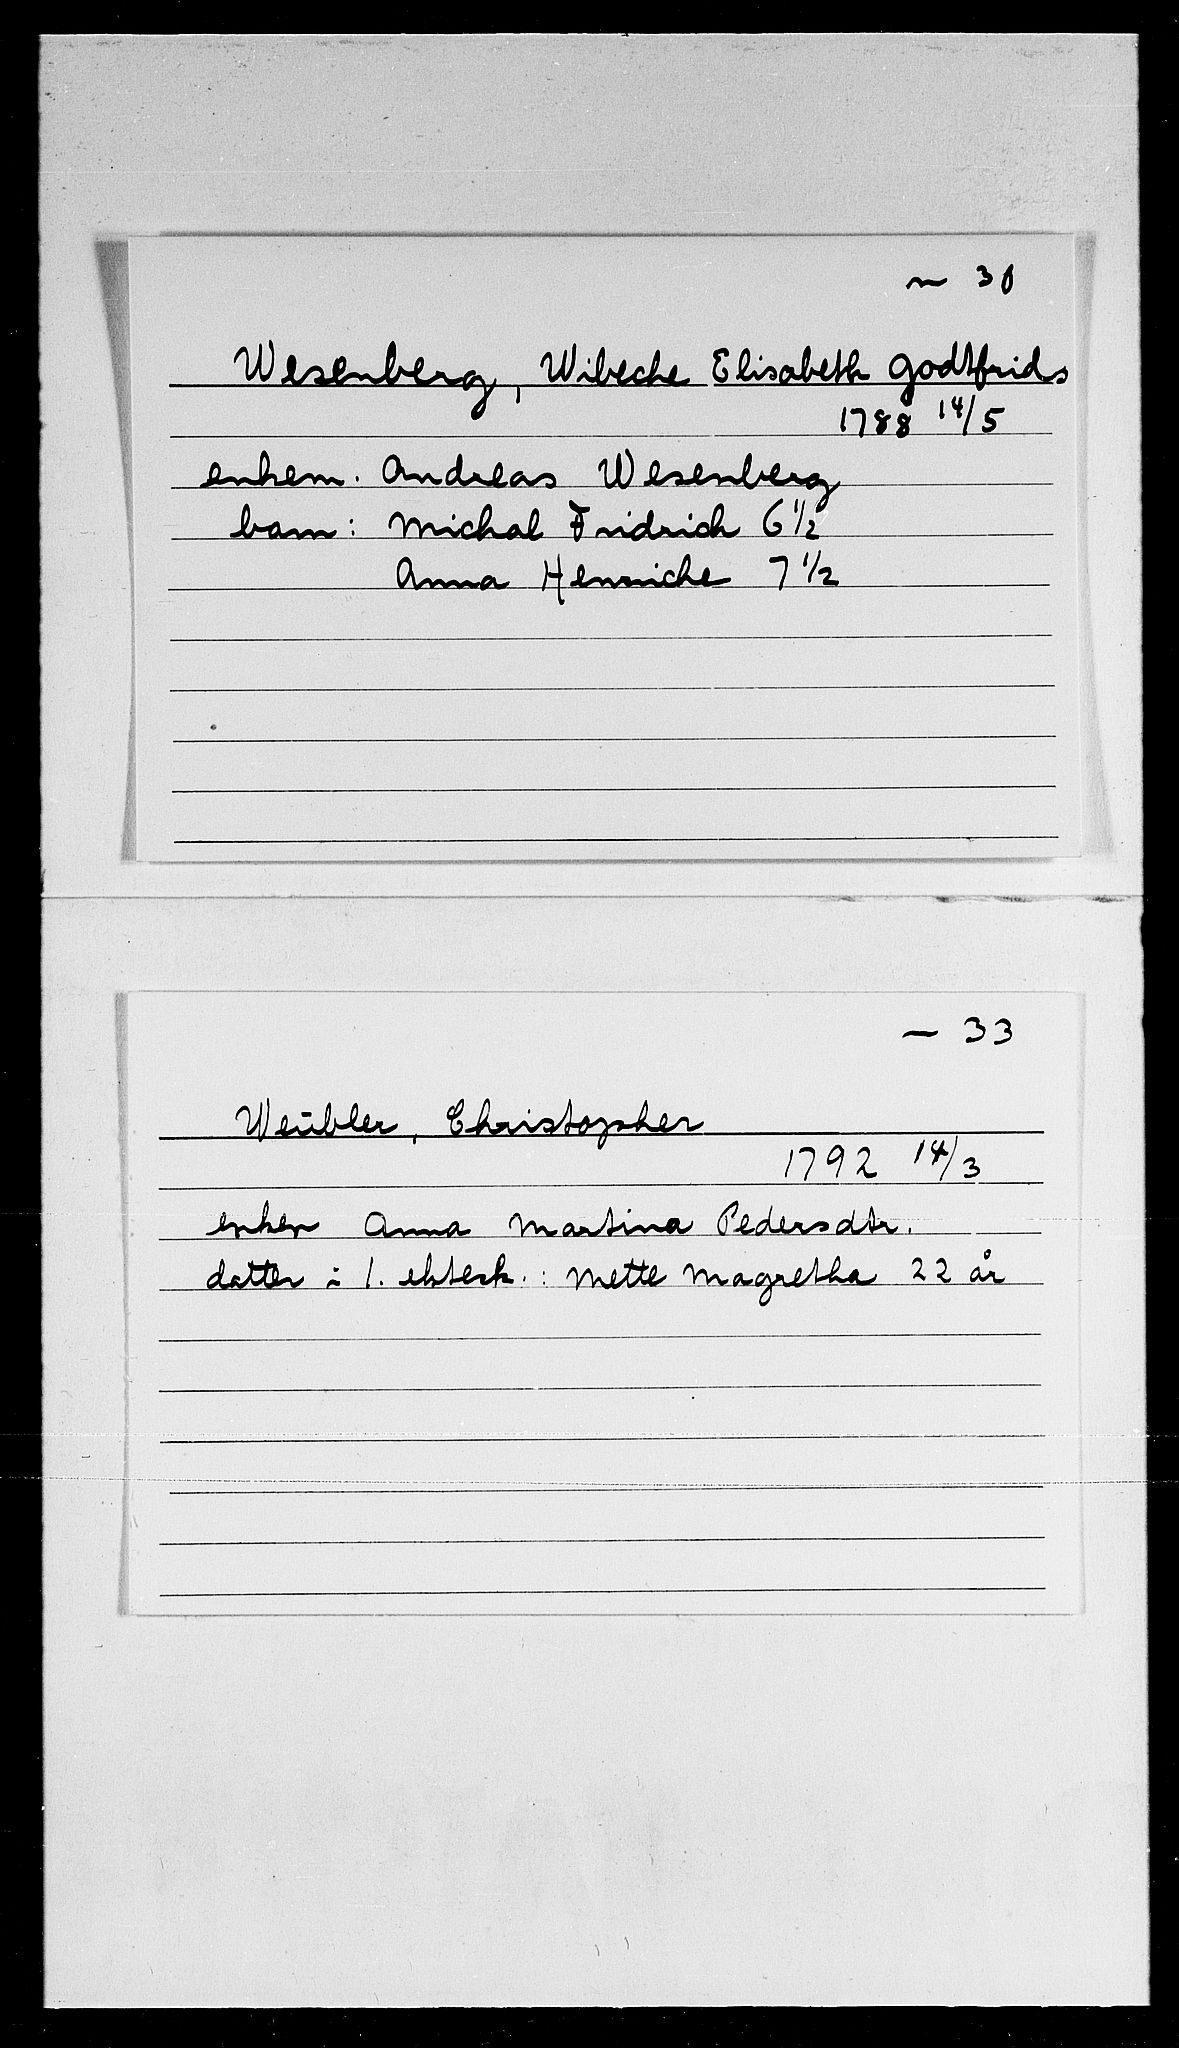 ~ 30
Wesenberg, Wibeche Elisabeth Godtfrids
1788 14/5
enkem. Andreas Wesenberg
barn: Michal Fridrich 6 1/2
Anna Henriche 7 1/2
— 33
Weübler, Christopher
1792 14/3
enken Anna Martina Pedersdtr.
datter i 1. ektesk.: Mette Magretha 22 år